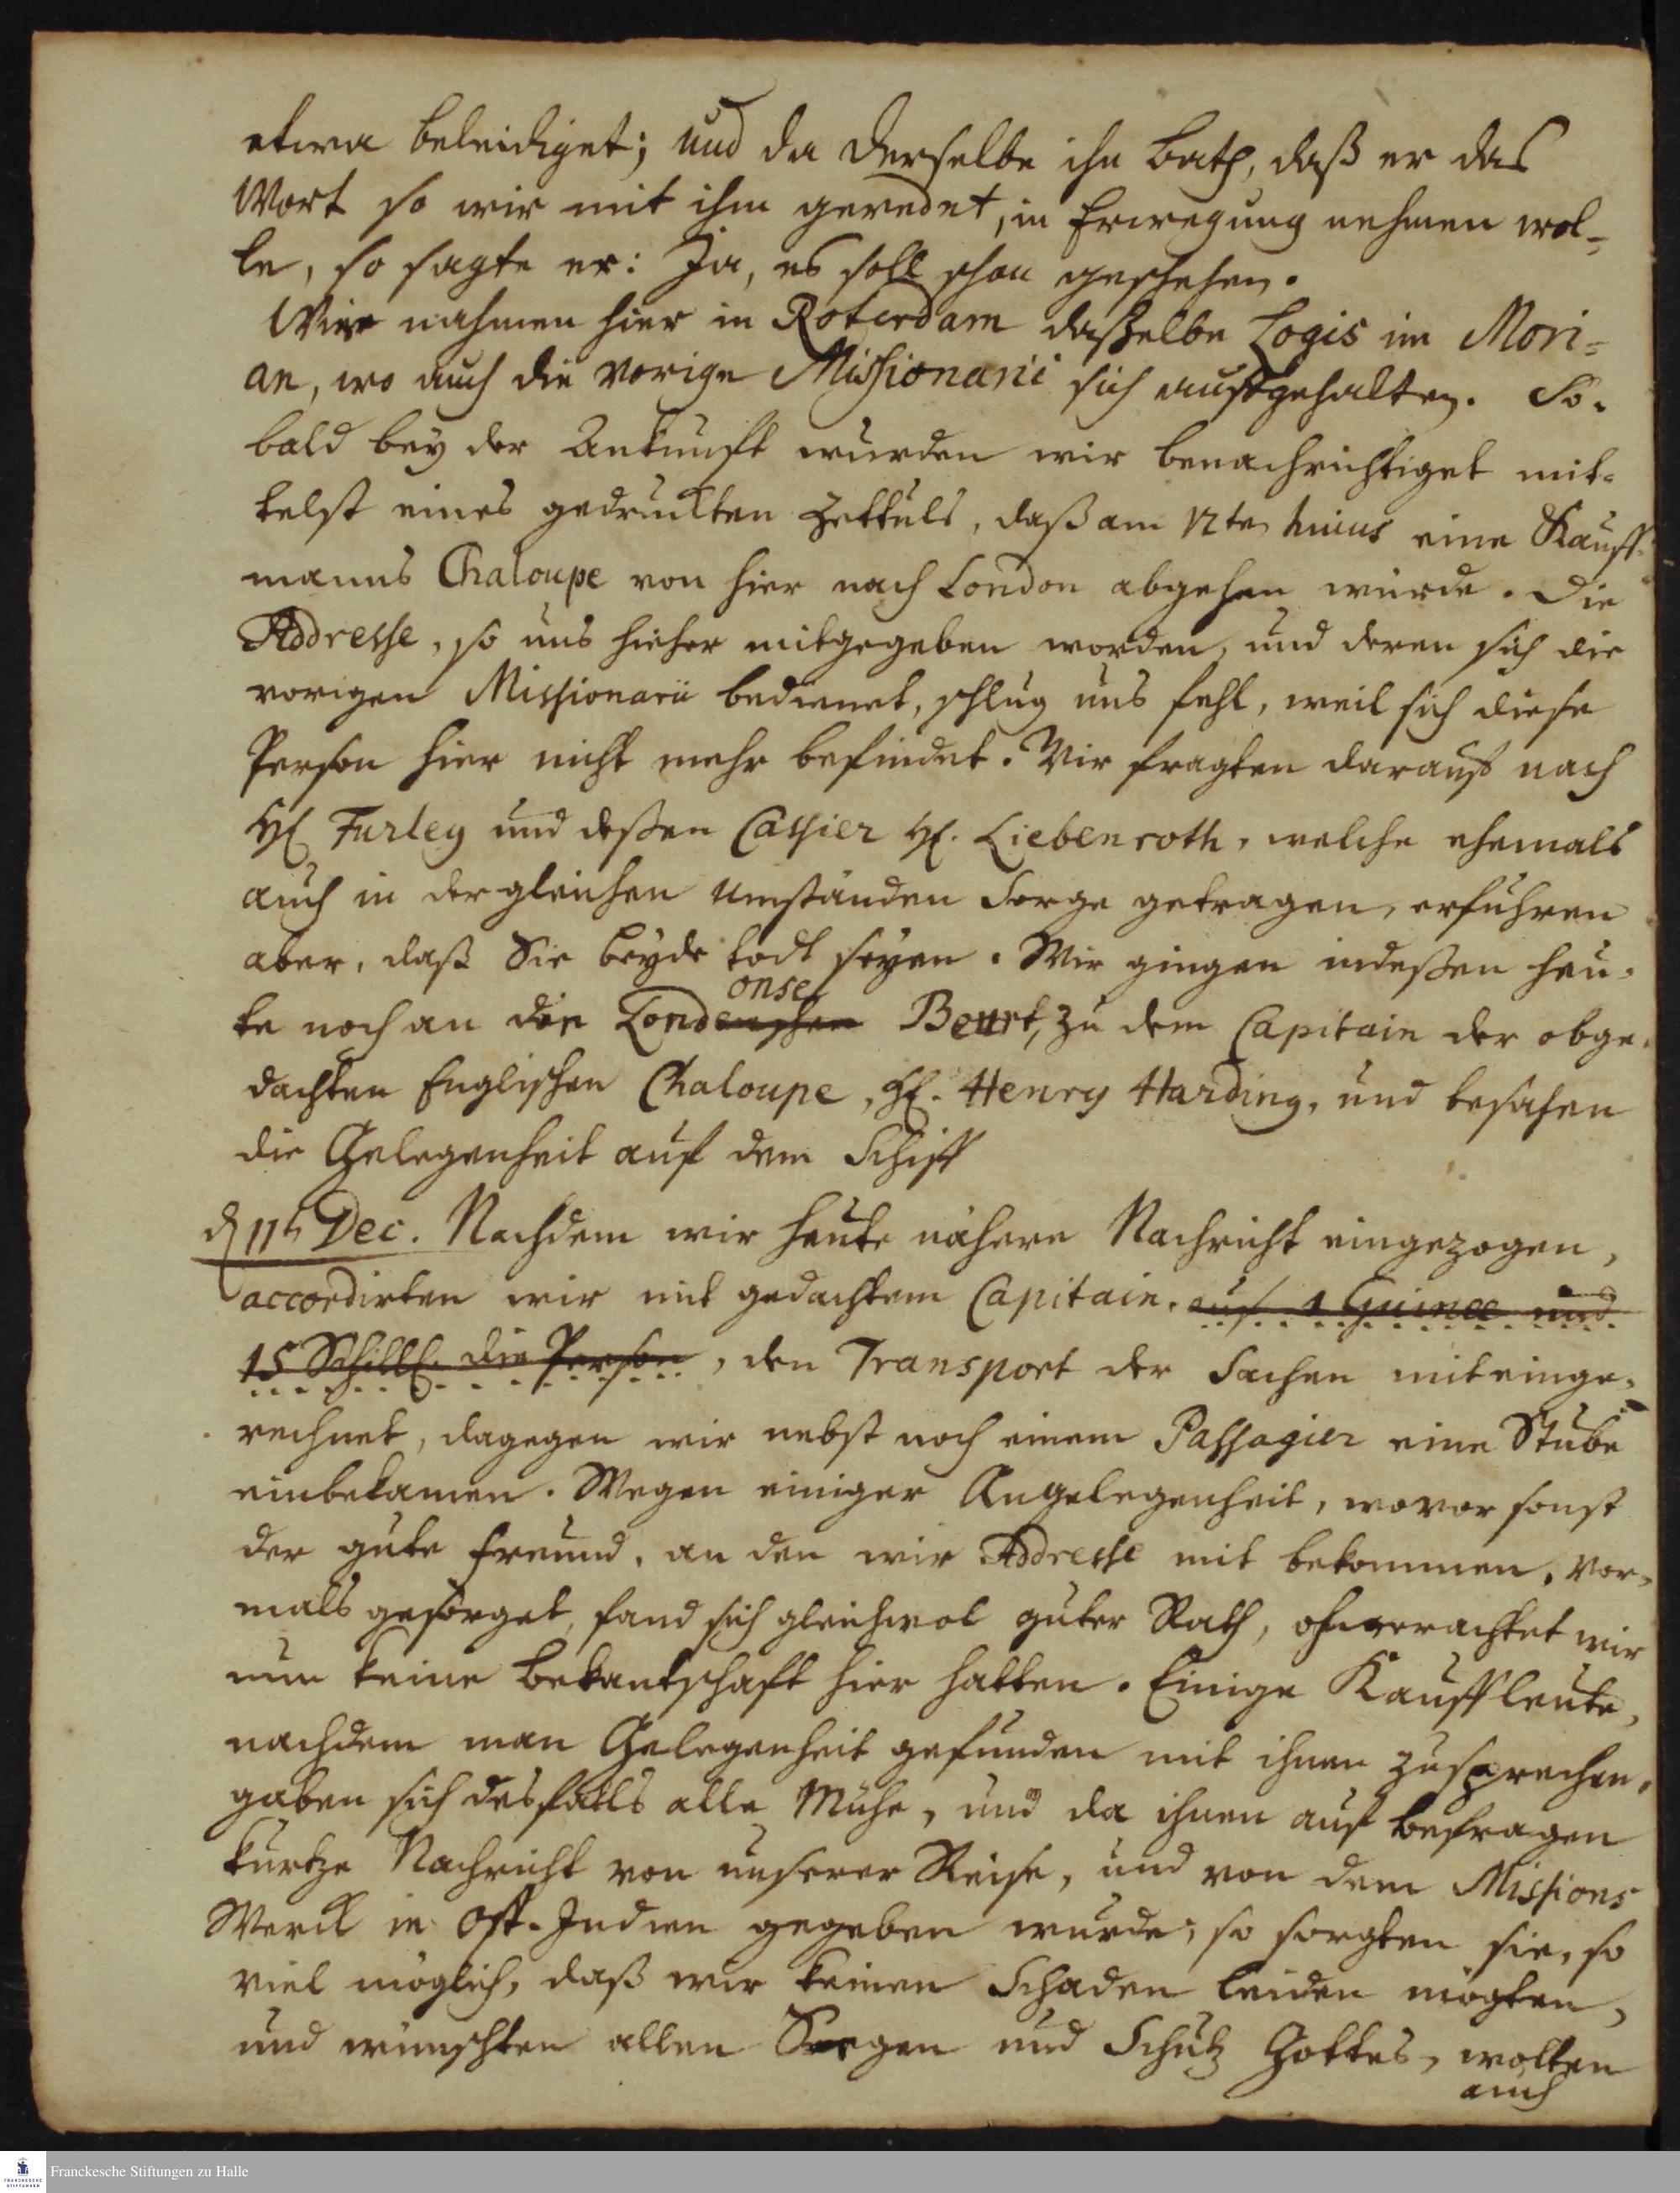 etwa beleidiget; und da derselbe ihn bath, daß er das
Wort so wir mit ihm geredet, in Erwegung nehmen wol-
le, so sagte er: Ja, es soll schon geschehen.
Wir nahmen hier in Roterdam daßelbe Logis im Mori=
an, wo auch die vorige Missionarii sich auffgehalten. So-
bald bey der Ankunfft wurden wir benachrichtiget mit-
telst eines gedruckten Zettuls, daß am 12ten huius eine Kauff-
manns Chaloupe von hier nach London abgehen würde. Die
Addresse, so uns hieher mitgegeben worden, und deren sich die
vorigen Missionarii bedienet, schlug uns fehl, weil sich diese
Person hier nicht mehr befindet. Wir fragten darauf nach
H. Furley und deßen Cassier H. Liebenroth, welche ehemals
auch in dergleichen Umständen Sorge getragen, erfuhren
aber, daß Sie beyde todt seyen. Wir gingen indeßen heu-
onse
te noch an die Londenschen Beurt, zu dem Capitain der obge-
dachten Englischen Chaloupe, H. Henry Harding, und besahen
die Gelegenheit auf dem Schiff
d 11t Dec. Nachdem wir heute nähere Nachricht eingezogen,
accordirten wir mit gedachtem Capitain, auf 1 Guinee und
15 Schill. die Person, den Transport der Sachen miteinge-
rechnet, dagegen wir nebst noch einem Passagier eine Stube
einbekamen. Wegen einiger Angelegenheit, wovor sonst
der gute Freund, an den wir Addresse mit bekommen, vor-
mals gesorget, fand sich gleichwol guter Rath, ohnerachtet wir
nun keine Bekantschaft hier hatten. Einige Kauffleute,
nachdem man Gelegenheit gefunden mit ihnen zusprechen,
gaben sich desfalls alle Mühe, und da ihnen auf befragen
kurtze Nachricht von unserer Reise, und von dem Missions
Werck in Ost-Indien gegeben wurde, so sorgten sie, so
viel möglich, daß wir keinen Schaden leiden mögten,
und wünschten allen Seegen und Schutz Gottes, wolten
auch
Franckesche Stiftungen zu Halle